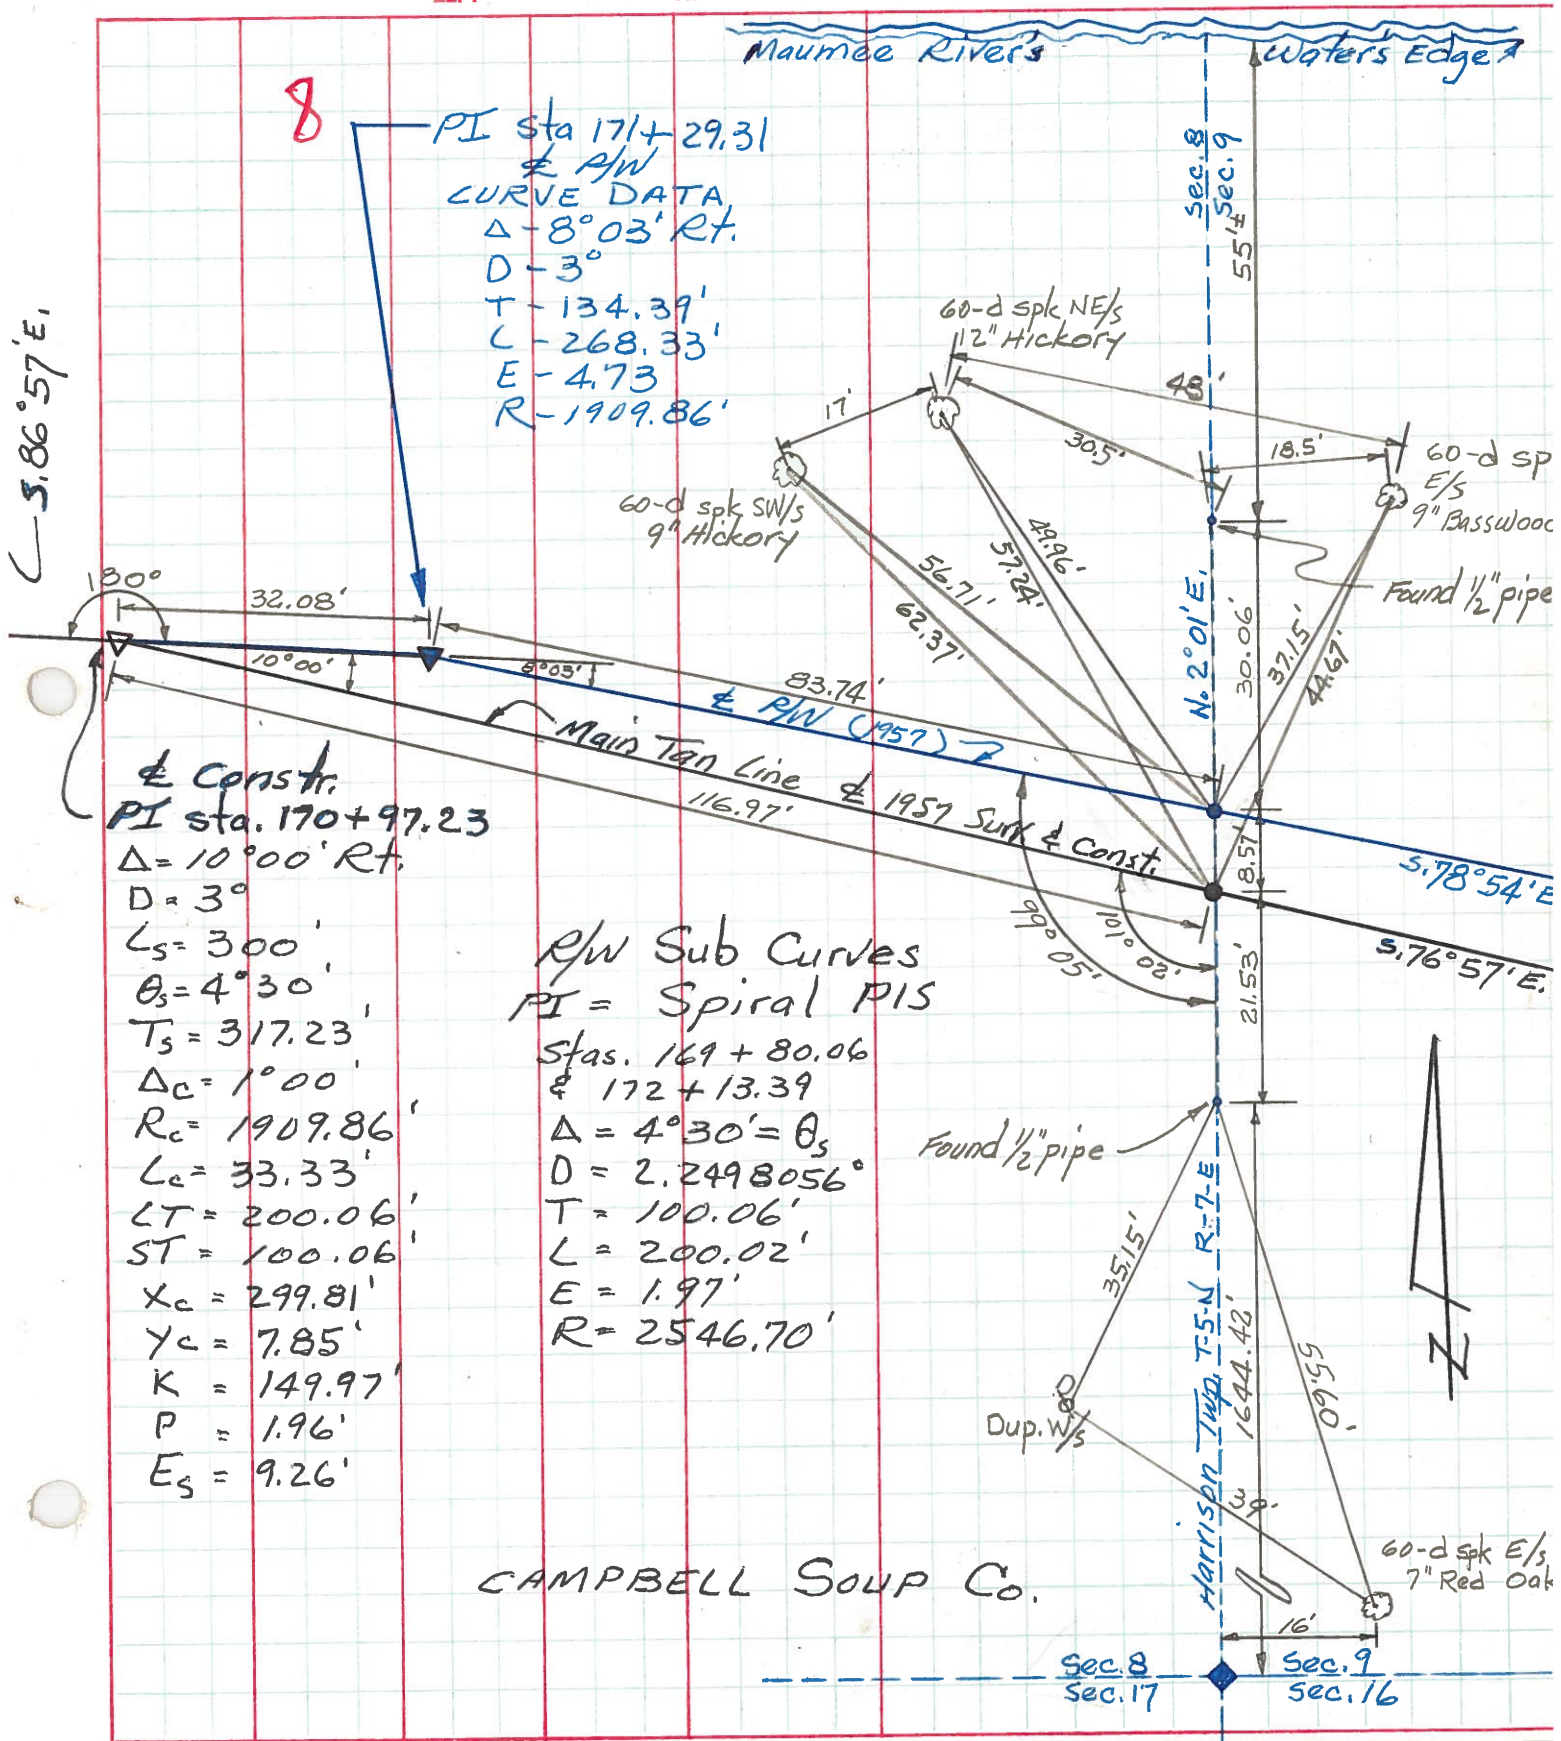 Maumee River's Waters Edge
8
PI sta 171+29.31
℄ R/W
CURVE DATA
Δ - 8°03' Rt.
D - 3°
T - 134.39'
L - 268.33'
E - 4.73
R - 1909.86'
Sec. 8
Sec. 9
55'±
S.86°57'E.
60-d spk NE/s
12" Hickory
48'
17'
30.5'
18.5'
60-d sp
E/s
9" Basswood
60-d spk SW/s
9" Hickory
49.96'
57.24'
56.71'
62.37'
Found 1/2" pipe
N. 2°01'E.
30.06'
37.15'
44.67'
180°
32.08'
10°00'
8°03'
83.74'
℄ R/W (1957)
Main Tan Line ℄ 1957 Surv. & Constr.
116.97'
8.57'
S.78°54'E
S.76°57'E.
99°05'
101°02'
21.53'
℄ Constr.
PI sta. 170+97.23
Δ = 10°00' Rt.
D = 3°
Ls = 300'
θs = 4°30'
Ts = 317.23'
Δc = 1°00'
Rc = 1909.86'
Lc = 33.33'
LT = 200.06'
ST = 100.06'
Xc = 299.81'
Yc = 7.85'
K = 149.97'
P = 1.96'
Es = 9.26'
R/W Sub Curves
PI = Spiral PIS
Stas. 169 + 80.06
& 172 + 13.39
Δ = 4°30' = θs
D = 2.2498056°
T = 100.06'
L = 200.02'
E = 1.97'
R = 2546.70'
Found 1/2" pipe
35.15'
55.60'
Harrison Twp. T-5-N R-7-E
1644.42'
N
Dup. W/s
39'
60-d spk E/s
7" Red Oak
16'
CAMPBELL SOUP Co.
Sec. 8 Sec. 9
Sec. 17 Sec. 16